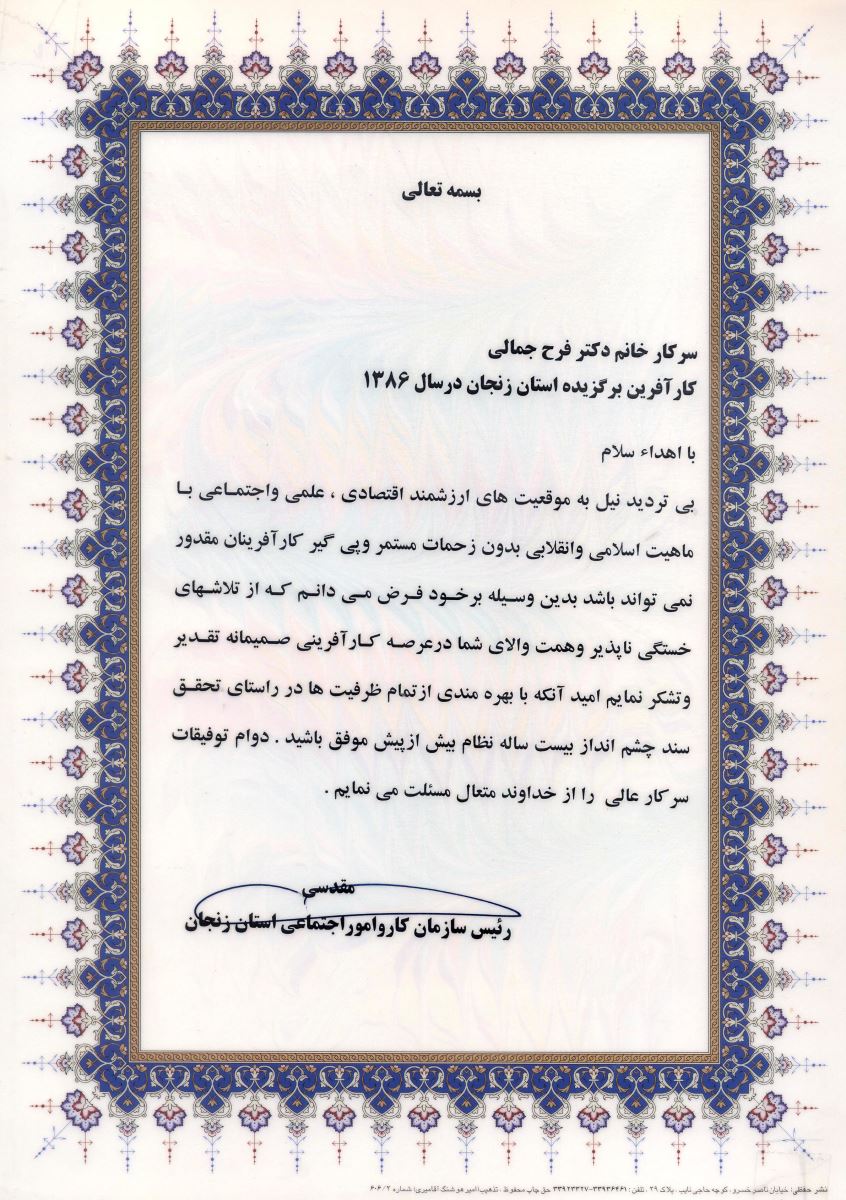 بسمه تعالی
سرکار خانم دکتر فرح جمالی
کارآفرین برگزیده استان زنجان درسال ۱۳۸۶
با اهداء سلام
بی تردید نیل به موقعیت های ارزشمند اقتصادی ، علمی واجتماعی با
ماهیت اسلامی وانقلابی بدون زحمات مستمر وپی گیر کارآفرینان مقدور
نمی تواند باشد بدین وسیله برخود فرض می دانم که از تلاشهای
خستگی ناپذیر وهمت والای شما درعرصه کارآفرینی صمیمانه تقدیر
وتشکر نمایم امید آنکه با بهره مندی ازتمام ظرفیت ها در راستای تحقق
سند چشم انداز بیست ساله نظام بیش ازپیش موفق باشید . دوام توفیقات
سرکار عالی را از خداوند متعال مسئلت می نمایم .
مقدسی
رئیس سازمان کاروامور اجتماعی استان زنجان
نشر حفظی: خیابان ناصرخسرو، کوچه حاجی نایب ، پلاک ۲۹ ، تلفن : ۳۳۹۳۶۴۶۱-۳۳۹۲۳۳۲۷ حق چاپ محفوظ ، تذهیب (امیرهوشنگ آقامیری) شماره ۶۰۶/۲